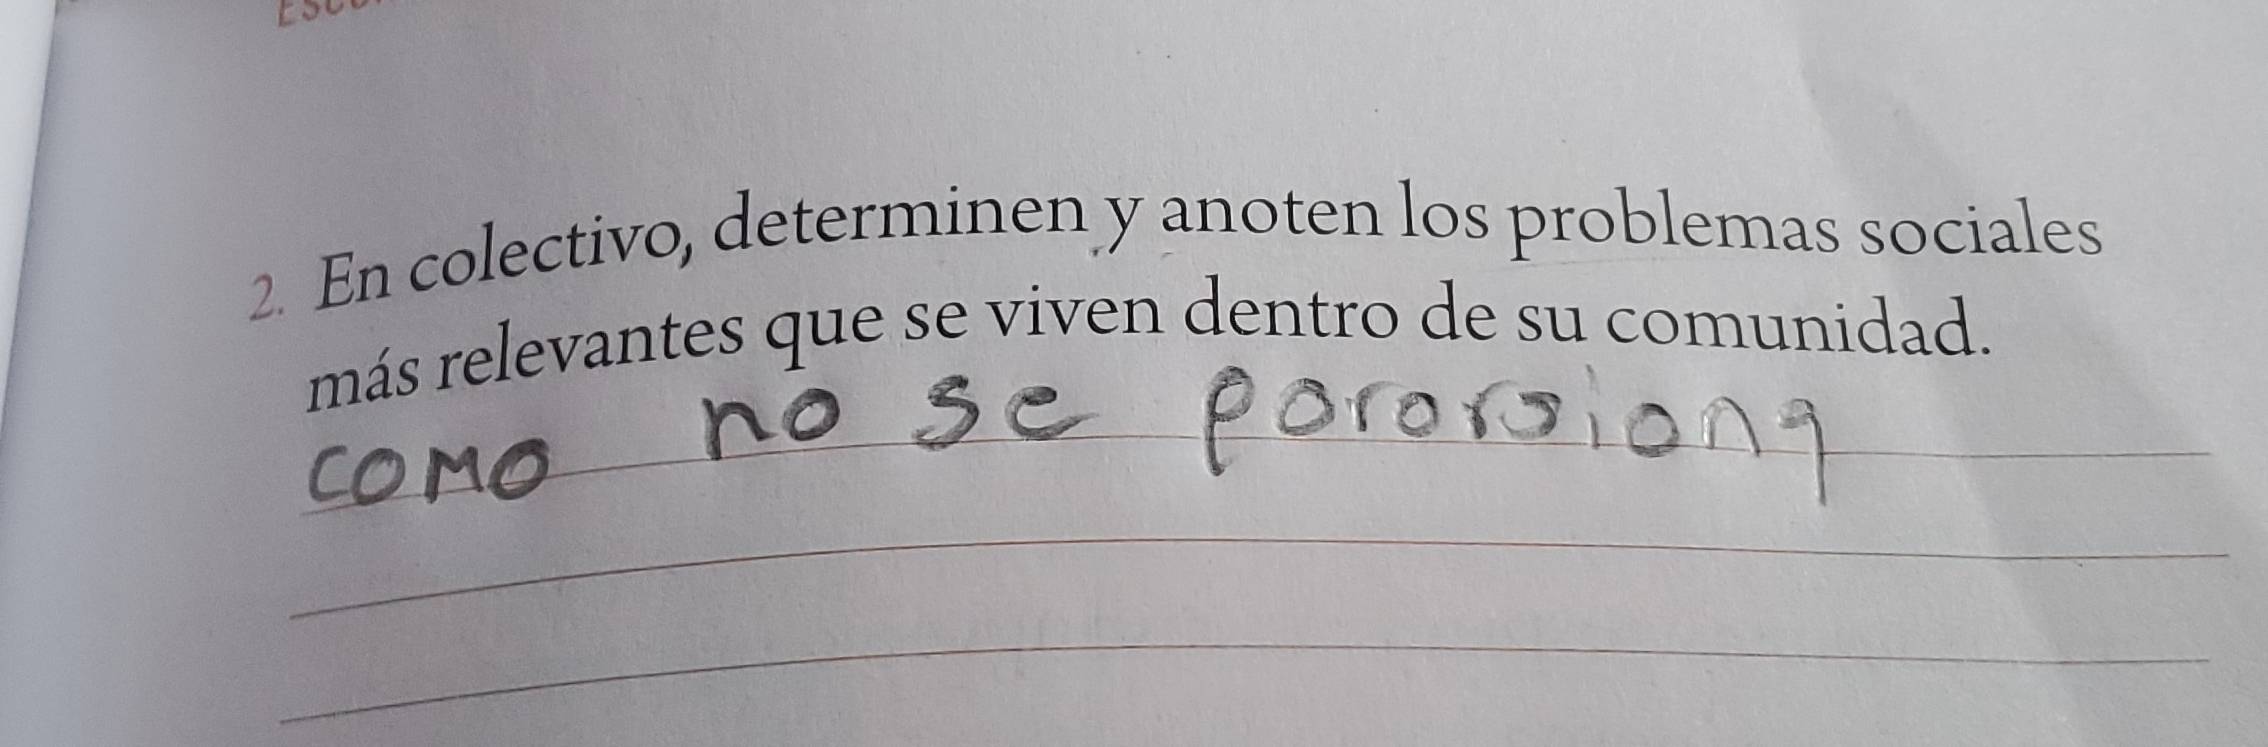 2. En colectivo, determinen y anoten los problemas sociales
más relevantes que se viven dentro de su comunidad.
como no se